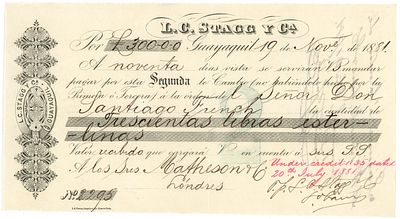 L.C. STAGG Y Cª
Por £ 300-0-0 Guayaquil 19 de Novᵉ de 1881.
A noventa dias vista se servirán Vˢ mandar
pagar por esta Segunda de Cambio (no habiéndolo hecho por la
Primera ó Tercera) a la orden del Señor Don
Santiago French la cantidad de
Trescientas libras ester-
linas
Valor recibido que cargará V en cuenta a sus S.S.
A los Sres Matheson & Cº
Londres
Under credit 1135 dated
20th July 1881
Nº 2295
L.C. STAGG Y Cª
GUAYAQUIL